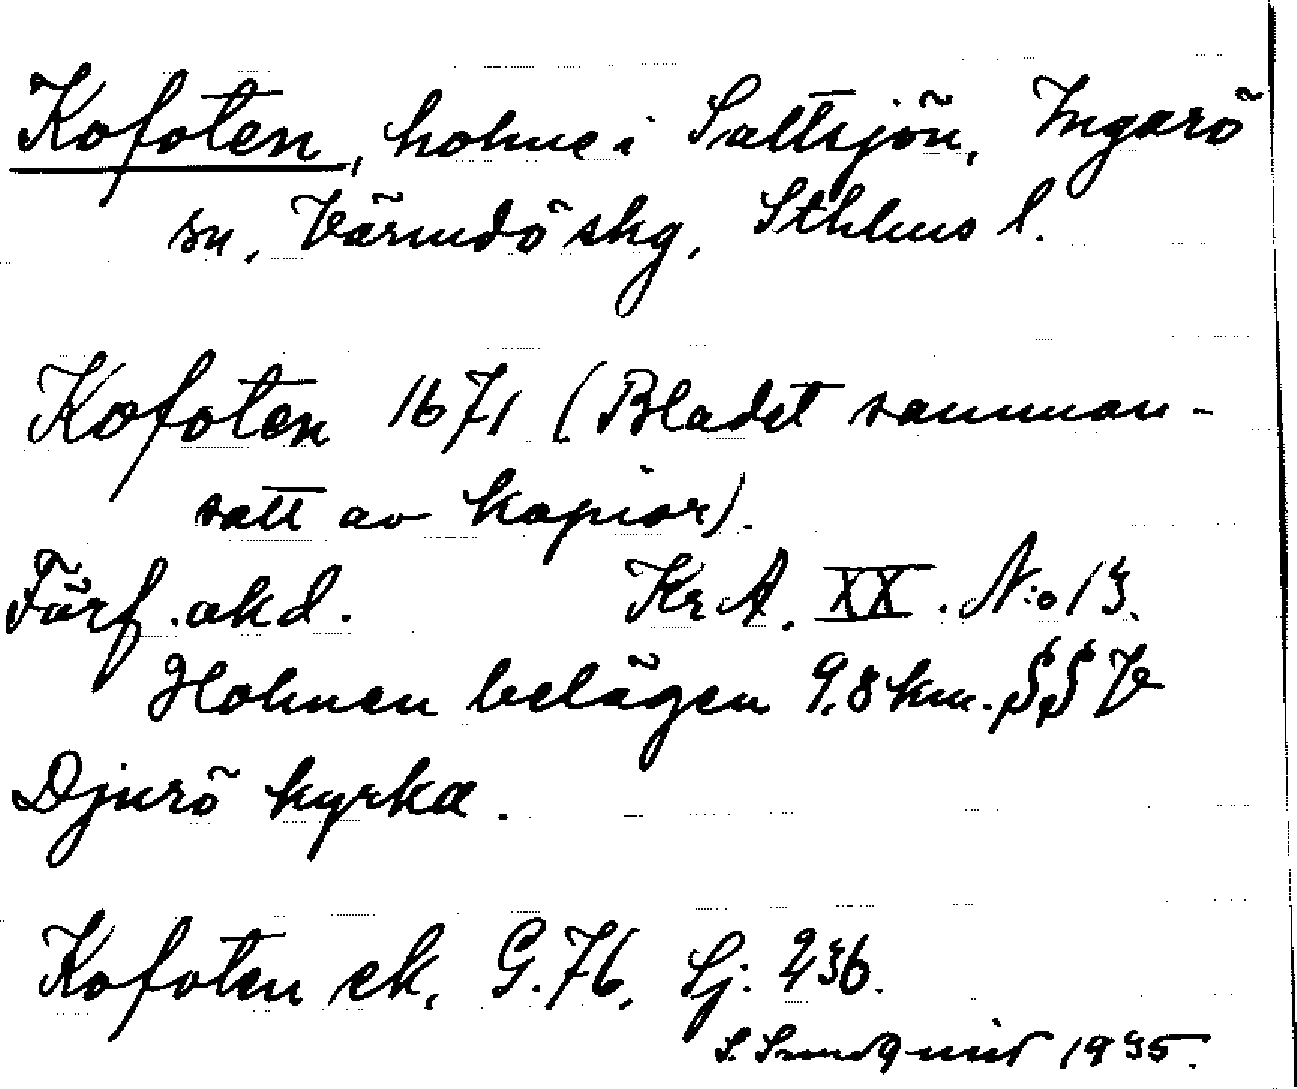 Kofoten, holme i Saltsjön, Ingarö
sn, Värmdö skg, Sthlms l.
Kofoten 1671 (Bladet samman-
satt av kopior).
Förf. okd. Kr A. XX. N:o 13.
Holmen belägen 9,8 km. SSV
Djurö kyrka.
Kofoten ek. G. 76, Sj: 236.
S. Sundquist 1935.